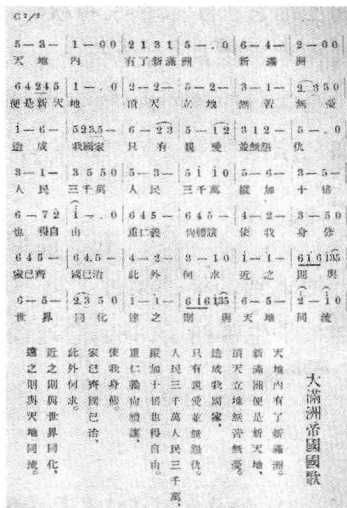 C 2/2
5 — 3 — | 1 — 0 0 | 2 1 3 1 | 5 — . 0 | 6 — 4 — | 2 — 0 0
天地內 有了新滿洲 新滿洲
6 4 2 4 5 | 1 — . 0 | 2 — 2 — | 5 — 2 — | 3 — 1 — | 2. 3 5 0
便是新天地 頂天立地 無苦無憂
i — 6 — | 5 2 3 5 — | 6 — 2 3 | 5 — i 2 | 3 1 2 — | 5 — . 0
造成我國家 只有親愛並無怨仇
3 — 1 — | 3 5 5 0 | 5 — 3 — | 5 i i 0 | 5 — 6 — | 3 — 3 —
人民三千萬 人民三千萬 縱加十倍
6 — 7 2 | i — . 0 | 6 4 5 — | 6 4 5 — | 4 — 2 — | 3 — 5 0
也得自由 重仁義尙禮讓使我身修
6 4 5 — | 6 4. 5 — | 4 — 2 — | 3 — 1 0 | i — 2 — | 6 i 6 i 3 5
家已齊國已治 此外何求 近之則與
6 — 5 — | 2. 3 5 0 | 1 — 1 — | 6 i 6 i 3 5 | 6 — 5 — | 2 — i 0
世界同化 遠之則與天地同流
大滿洲帝國國歌
天地內有了新滿洲。
新滿洲便是新天地、
頂天立地無苦無憂。
造成我國家、
只有親愛並無怨仇。
人民三千萬人民三千萬、
縱加十倍也得自由。
重仁義尙禮讓、
使我身修。
家已齊國已治、
此外何求。
近之則與世界同化、
遠之則與天地同流。